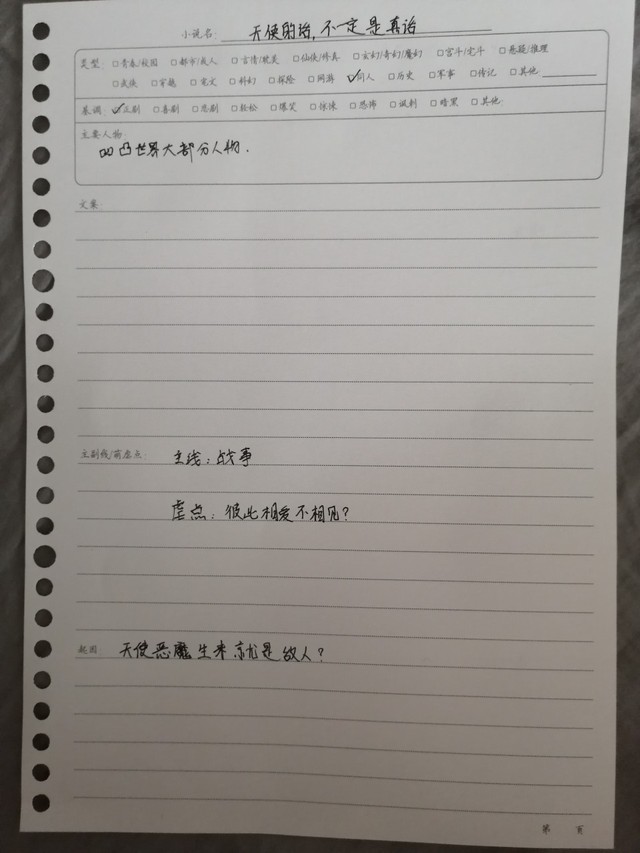 小说名: 天使的话,不一定是真话
类型: □青春/校园 □都市/成人 □言情/耽美 □仙侠/修真 □玄幻/奇幻/魔幻 □宫斗/宅斗 □悬疑/推理
□武侠 □穿越 □宠文 □科幻 □探险 □网游 ✓同人 □历史 □军事 □传记 □其他
基调: ✓正剧 □喜剧 □悲剧 □轻松 □爆笑 □惊悚 □恐怖 □讽刺 □暗黑 □其他:
主要人物:
凹凸世界大部分人物.
文案:
主副线/萌虐点: 主线:战事
虐点:彼此相爱不相见?
起因: 天使恶魔生来就是敌人?
第 页